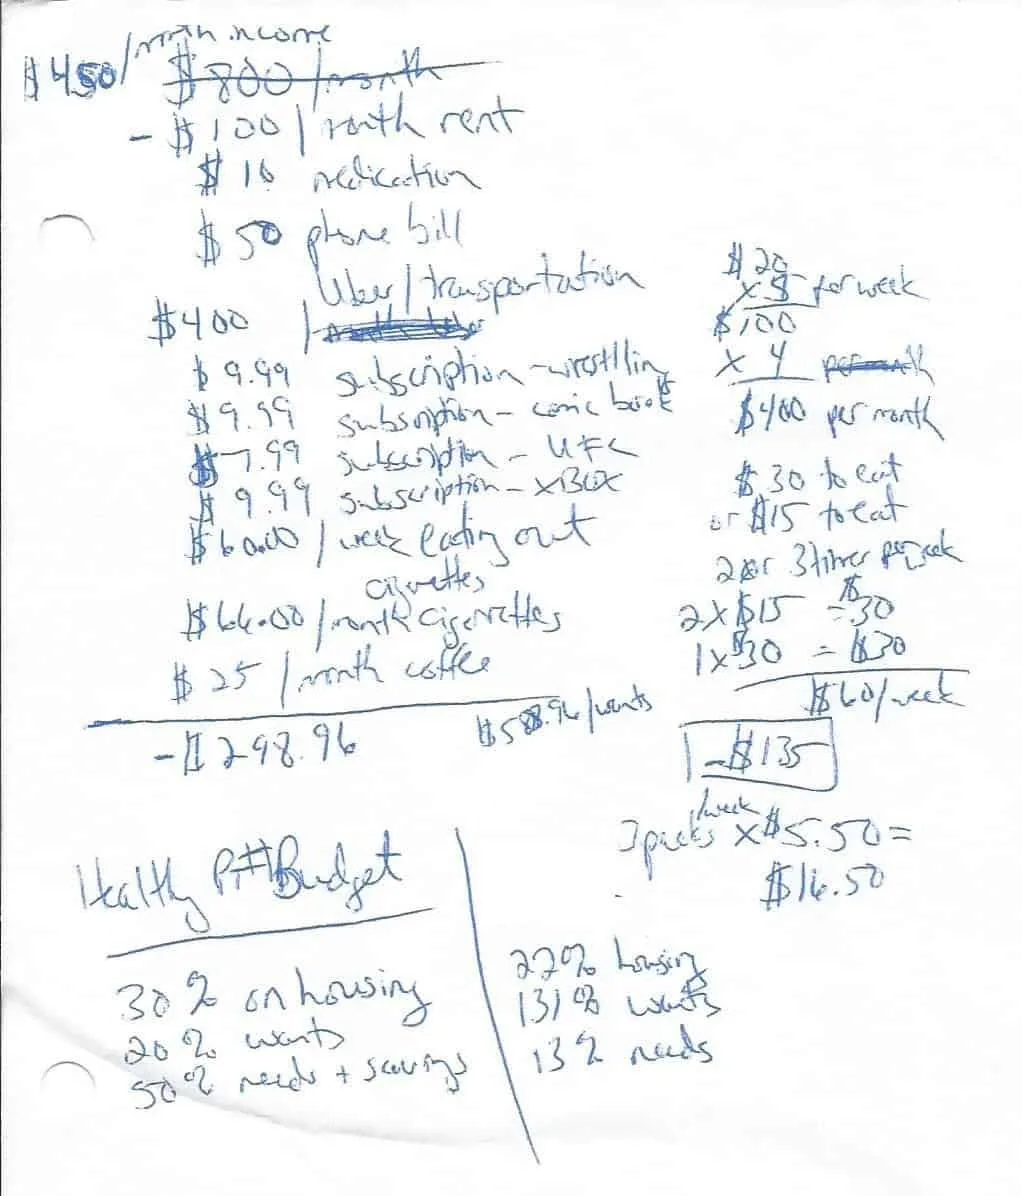 $450/month income
$800/month
- $100/month rent
$10 medication
$50 phone bill
Uber/transportation
$400 /
$9.99 subscription - wrestling
$9.99 subscription - comic book
$7.99 subscription - UFC
$9.99 subscription - XBOX
$60.00/week eating out
cigarettes
$66.00/month cigarettes
$25/month coffee
-$298.96
/wants
$20
x 5 per week
$100
x 4 per month
$400 per month
$30 to eat
or $15 to eat
2 or 3 times per week
2x$15 = $30
1x$30 = $30
$60/week
-$135
3 packs /week x $5.50 =
$16.50
Healthy Budget
30% on housing
20% wants
50% needs + savings
22% housing
131% wants
13% needs